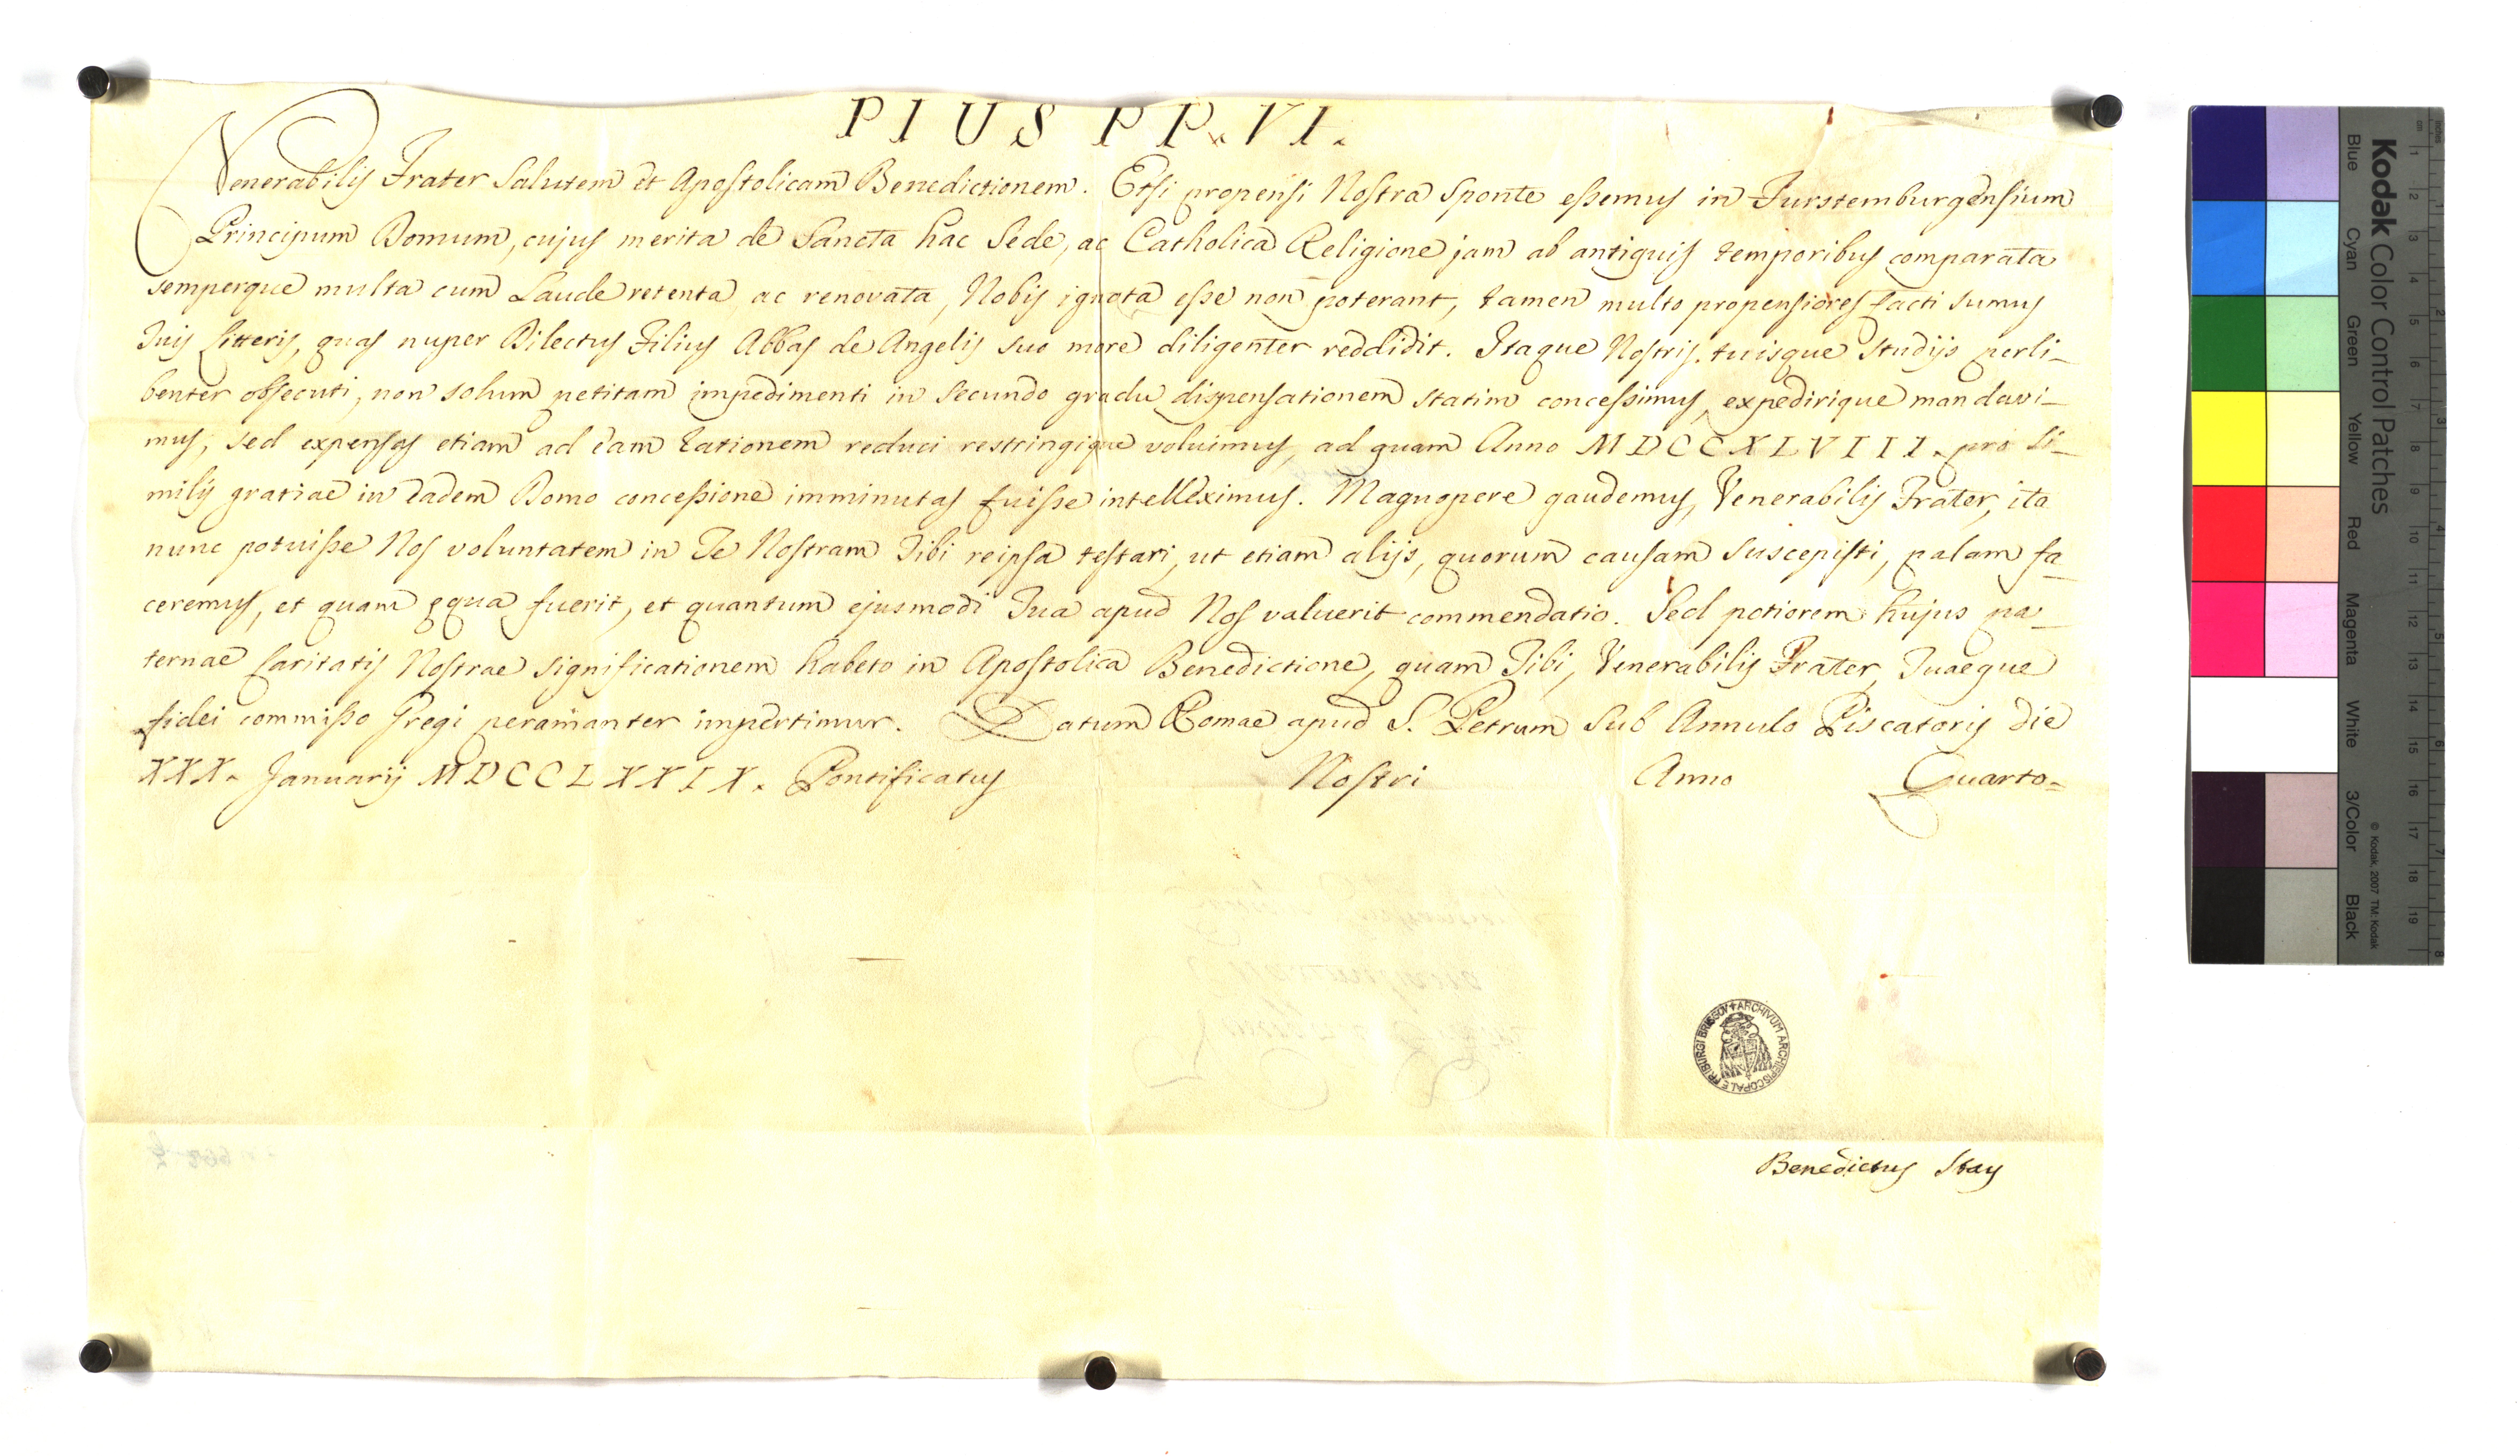 PIUS PP. VI.
Venerabilis Frater Salutem et Apostolicam Benedictionem. Etsi propensi Nostra Sponte essemus in Furstemburgensium
Principum Domum, cujus merita de Sancta hac Sede, ac Catholica Religione jam ab antiquis temporibus comparata
semperque multa cum Laude retenta, ac renovata, Nobis ignota esse non poterant, tamen multo propensiores facti sumus
Tuis Litteris, quas nuper Dilectus Filius Abbas de Angelis suo more diligenter reddidit. Itaque Nostris tuisque Studijs perli-
benter obsecuti, non solum petitam impedimenti in secundo gradu dispensationem statim concessimus, expedirique mandavi-
mus, sed expensas etiam ad eam rationem reduci restringique voluimus, ad quam Anno MDCCXLVIII. pro si-
milis gratiae in eadem Domo concessione imminutas fuisse intelleximus. Magnopere gaudemus, Venerabilis Frater, ita
nunc potuisse Nos voluntatem in Te Nostram Tibi reipsa testari, ut etiam alijs, quorum causam suscepisti, palam fa-
ceremus, et quam ęqua fuerit, et quantum ejusmodi Tua apud Nos valuerit commendatio. Sed potiorem hujus pa-
ternae Caritatis Nostrae significationem habeto in Apostolica Benedictione, quam Tibi, Venerabilis Frater, Tuaeque
fidei commisso Gregi peramanter impertimur. Datum Romae apud S. Petrum Sub Annulo Piscatoris die
XXX. Januarij MDCCLXXIX. Pontificatus Nostri Anno Quarto.
ARCHIVUM ARCHIEPISCOPALE FRIBURGI BRISGOV
Benedictus Stay
Kodak Color Control Patches
Blue Cyan Green Yellow Red Magenta White 3/Color Black
© Kodak, 2007 TM: Kodak
cm 1 2 3 4 5 6 7 8 9 10 11 12 13 14 15 16 17 18 19
inches 1 2 3 4 5 6 7 8